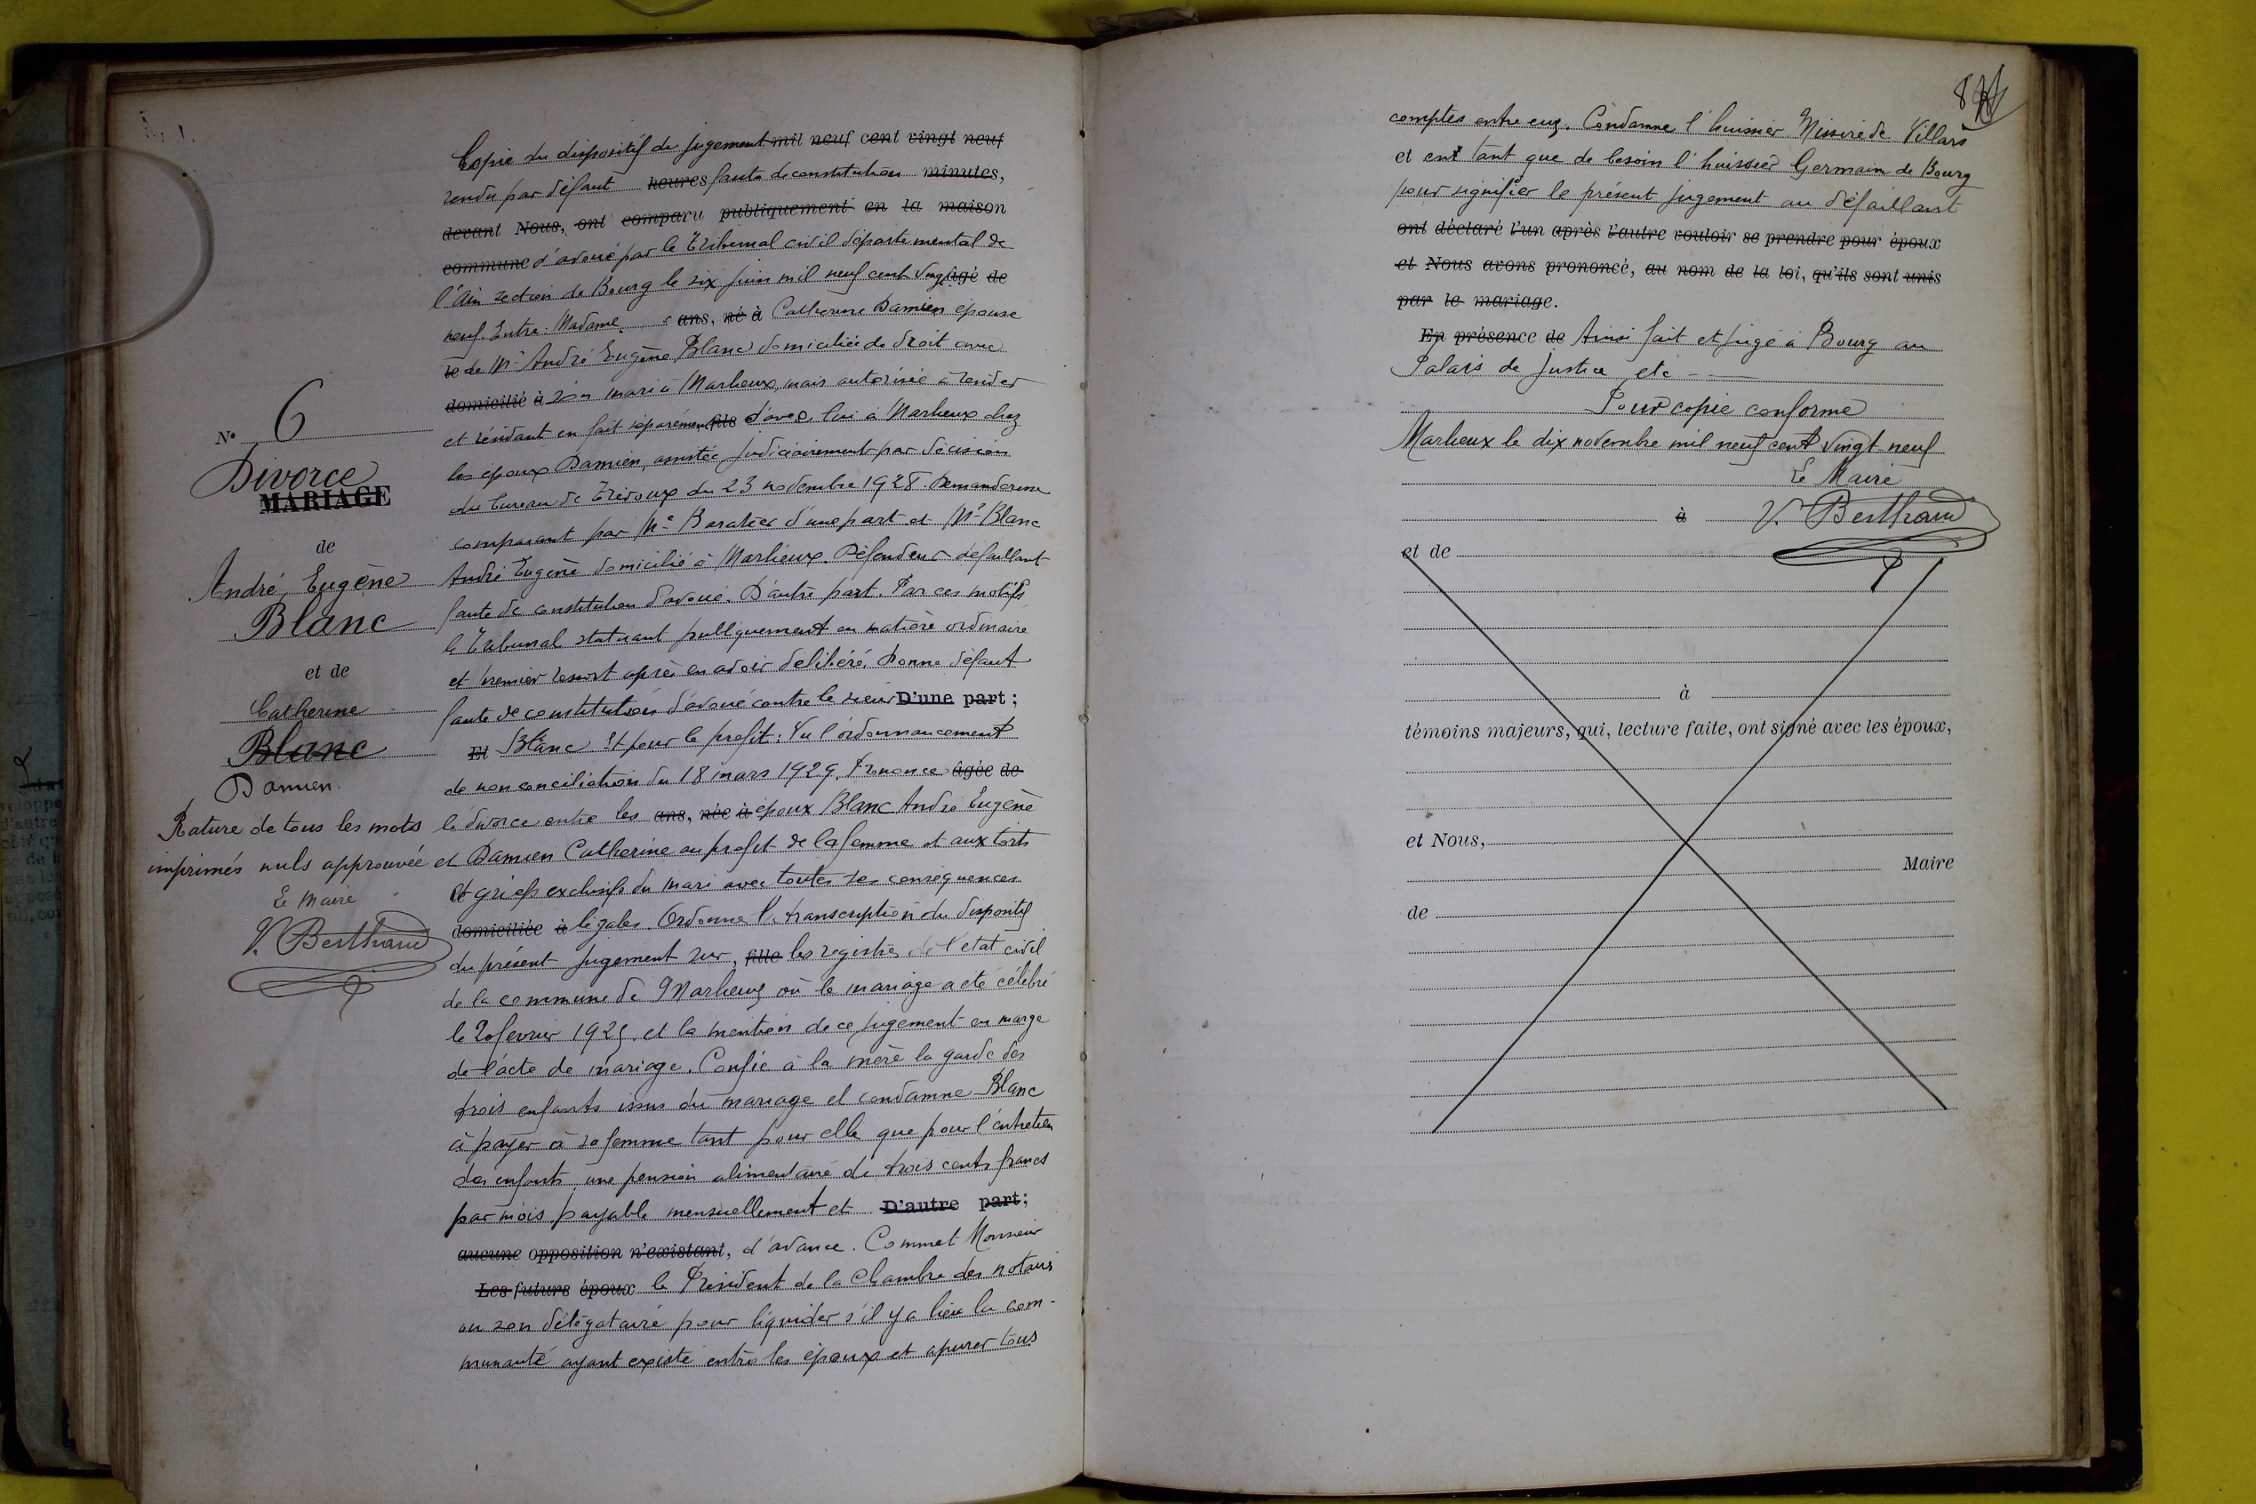 N° 6
Divorce
MARIAGE
de
André, Eugène
Blanc
et de
Catherine
Blanc
Damien
Rature de tous les mots
imprimés nuls approuvée
Le Maire
V. Berthaud
Copie du dispositif du jugement mil neuf cent vingt neuf
rendu par défaut heures faute de constitution minutes,
devant Nous, ont comparu publiquement en la maison
commune d'avoué par le Tribunal civil départemental de
l'Ain section de Bourg le six juin mil neuf cent vingt âgé de
neuf. Entre: Madame ans, né à Catherine Damien épouse
le de Mr André Eugène Blanc domiciliée de droit avec
domicilié à son mari à Marlieux, mais autorisée à résider
et résidant en fait séparément fils d'avec lui à Marlieux chez
les époux Damien, assistée judiciairement par décision
du bureau de Trévoux du 23 novembre 1928. Demanderesse
comparant par Me Baratier d'une part et Mr Blanc
André Eugène domicilié à Marlieux. Défendeur défaillant
faute de constitution d'avoué. D'autre part. Par ces motifs
le Tribunal statuant publiquement en matière ordinaire
et premier ressort après en avoir délibéré, Donne défaut
faute de constitution d'avoué contre le sieur D'une part;
Et Blanc Et pour le profit: Vu l'ordonnancement
de non conciliation du 18 mars 1929. Prononce âgée de
le divorce entre les ans, née à époux Blanc André Eugène
et Damien Catherine au profit de la femme et aux torts
et griefs exclusifs du mari avec toutes ses conséquences
domiciliée à légales. Ordonne la transcription du dispositif
du présent jugement sur, fille les registres de l'état civil
de la commune de Marlieux où le mariage a été célébré
le 20 février 192 et la mention de ce jugement en marge
de l'acte de mariage. Confie à la mère la garde des
trois enfants issus du mariage et condamne Blanc
à payer à sa femme tant pour elle que pour l'entretien
des enfants une pension alimentaire de trois cents francs
par mois payable mensuellement et D'autre part;
aucune opposition n'existant, d'avance. Commet Monsieur
Les futurs époux le Président de la Chambre des notaires
ou son délégataire pour liquider s'il y a lieu la com-
munauté ayant existé entre les époux et apurer tous
comptes entre eux. Condamne l'huissier Missire de Villars
et ent tant que de besoin l'huissier Germain de Bourg
pour signifier le présent jugement au défaillant
ont déclaré l'un après l'autre vouloir se prendre pour époux
et Nous avons prononcé, au nom de la loi, qu'ils sont unis
par le mariage.
En présence de Ainsi fait et jugé à Bourg au
Palais de justice, etc -
Pour copie conforme
Marlieux le dix novembre mil neuf cent vingt neuf
Le Maire
à V. Berthaud
et de
à
témoins majeurs, qui, lecture faite, ont signé avec les époux,
et Nous,
Maire
de